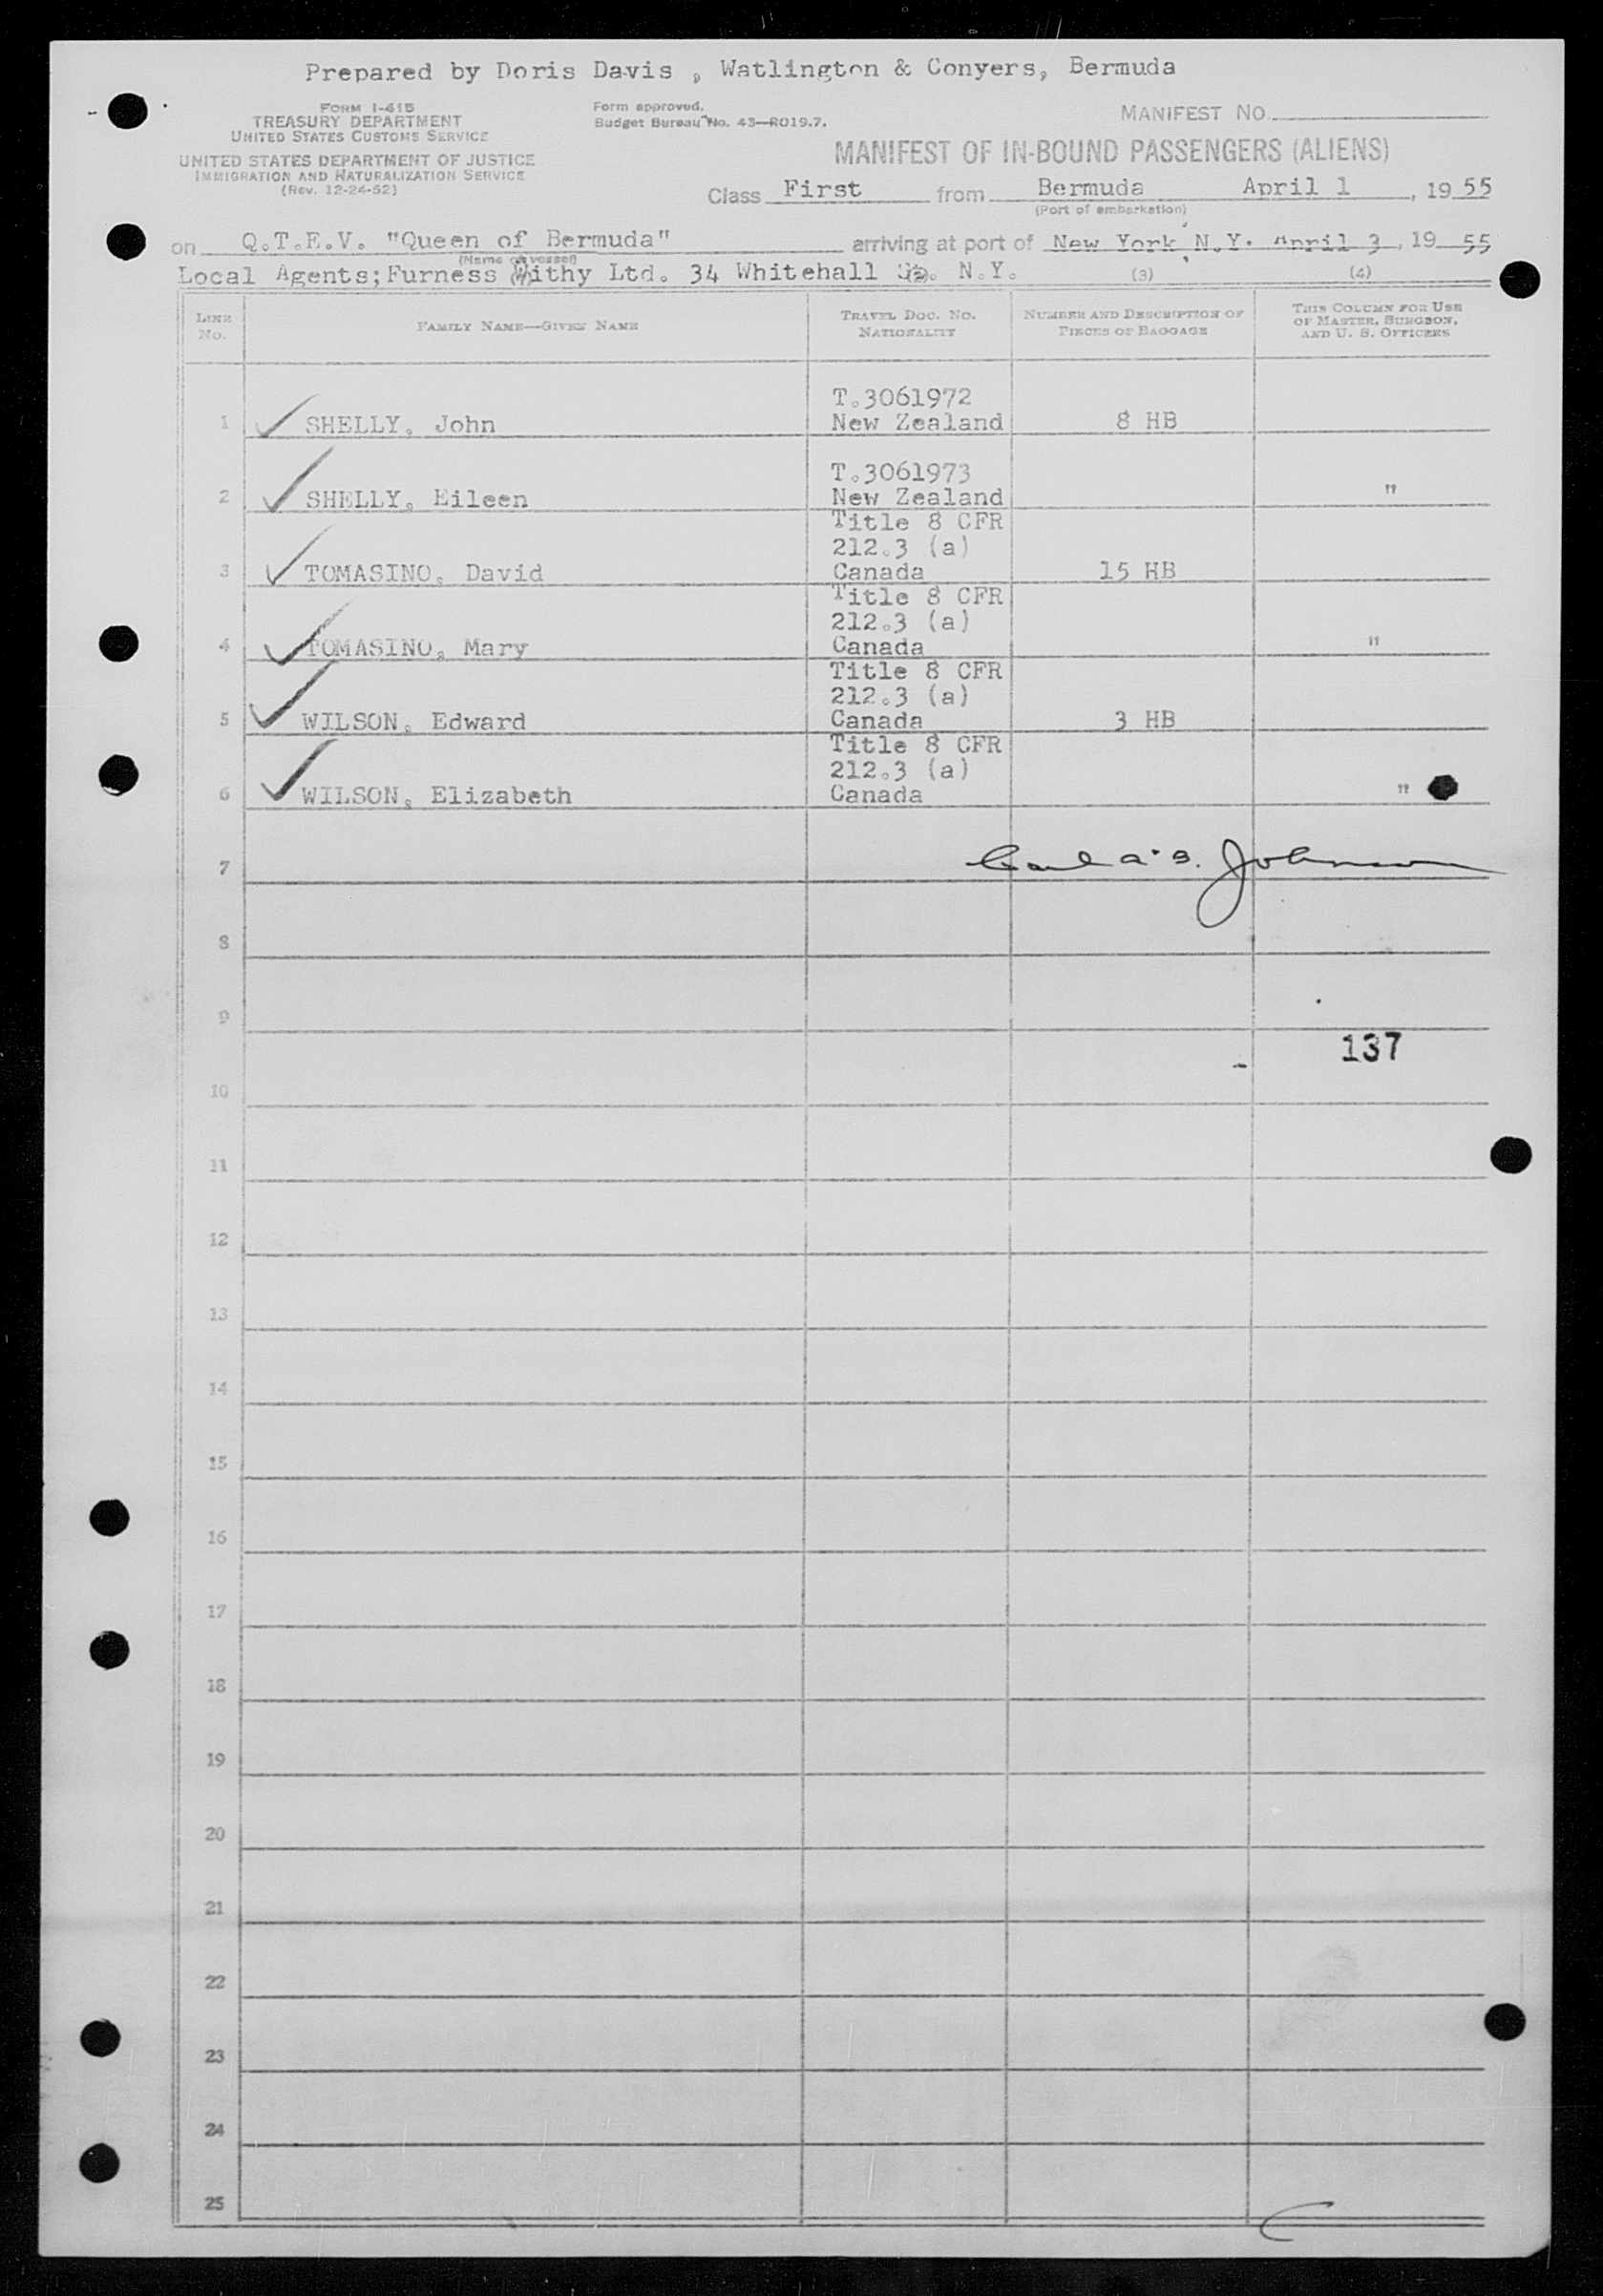 Prepared by Doris Davis , Watlington & Conyers, Bermuda
FORM I-415
TREASURY DEPARTMENT
UNITED STATES CUSTOMS SERVICE
UNITED STATES DEPARTMENT OF JUSTICE
IMMIGRATION AND NATURALIZATION SERVICE
(Rev. 12-24-52)
Form approved.
Budget Bureau No. 43—R019.7.
MANIFEST NO.
MANIFEST OF IN-BOUND PASSENGERS (ALIENS)
Class First from Bermuda April 1, 1955
(Port of embarkation)
on Q.T.E.V. "Queen of Bermuda" arriving at port of New York, N.Y. April 3, 1955
(Name of vessel)
Local Agents;Furness Withy Ltd. 34 Whitehall N.Y.
(3) (4)
LINE No.
FAMILY NAME—GIVEN NAME
TRAVEL DOC. NO.
NATIONALITY
NUMBER AND DESCRIPTION OF
PIECES OF BAGGAGE
THIS COLUMN FOR USE
OF MASTER, SURGEON,
AND U. S. OFFICERS
T.3061972
1 SHELLY, John New Zealand 8 HB
T.3061973
2 SHELLY, Eileen New Zealand "
Title 8 CFR
212.3 (a)
3 TOMASINO, David Canada 15 HB
Title 8 CFR
212.3 (a)
4 TOMASINO, Mary Canada "
Title 8 CFR
212.3 (a)
5 WILSON, Edward Canada 3 HB
Title 8 CFR
212.3 (a)
6 WILSON, Elizabeth Canada "
7 Johnson
8
9
137
10
11
12
13
14
15
16
17
18
19
20
21
22
23
24
25